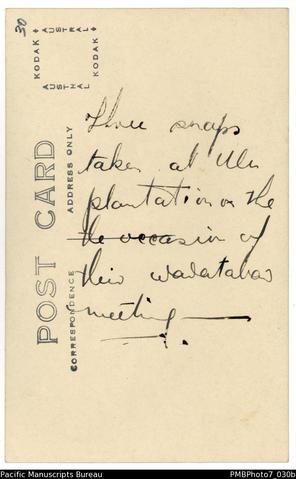 30
KODAK AUSTRAL
AUSTRAL KODAK
POST CARD
CORRESPONDENCE ADDRESS ONLY
These snaps
taken at Ulu
plantation on the
the occasion of
their
meeting
Pacific Manuscripts Bureau PMBPhoto7_030b